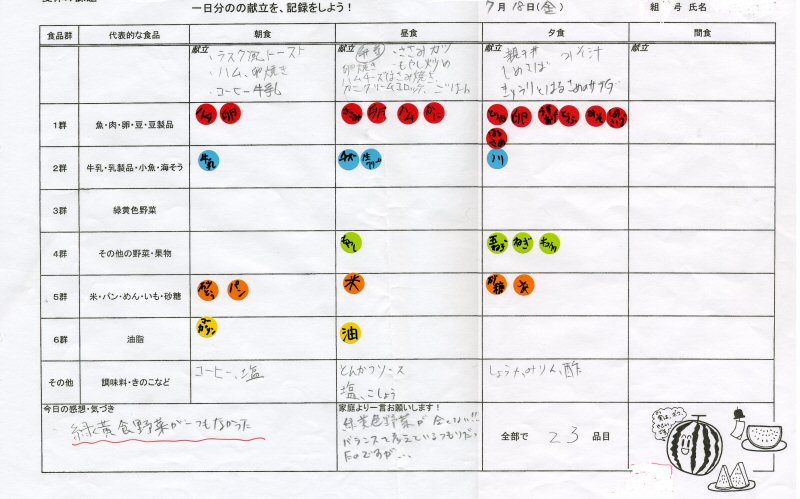 一日分のの献立を、記録をしよう！
7月18日(金) 組 号 氏名
食品群 代表的な食品 朝食 昼食 夕食 間食
献立 献立 献立 献立
・ラスク風トースト
・ハム、卵焼き
・コーヒー牛乳
・ささみカツ
卵焼き ・もやし炒め
ハムチーズはさみ焼き
カニクリームコロッケ、ごはん
親子丼 みそ汁
しめさば
きゅうりとはるさめのサラダ
1群 魚・肉・卵・豆・豆製品
ハム 卵 ささみ 卵 ハム かに
卵
2群 牛乳・乳製品・小魚・海そう
牛乳 チーズ 生クリーム ノリ
3群 緑黄色野菜
4群 その他の野菜・果物
もやし 玉ねぎ ねぎ きゅうり
5群 米・パン・めん・いも・砂糖
さとう パン 米 砂糖 米
6群 油脂
マーガリン 油
その他 調味料・きのこなど
コーヒー、塩
とんかつソース
塩、こしょう
しょうゆ、みりん、酢
今日の感想・気づき
緑黄食野菜が一つもなかった
家庭より一言お願いします！
緑黄色野菜が全くない!!
バランスを考えているつもりだったのですが...
全部で 23 品目